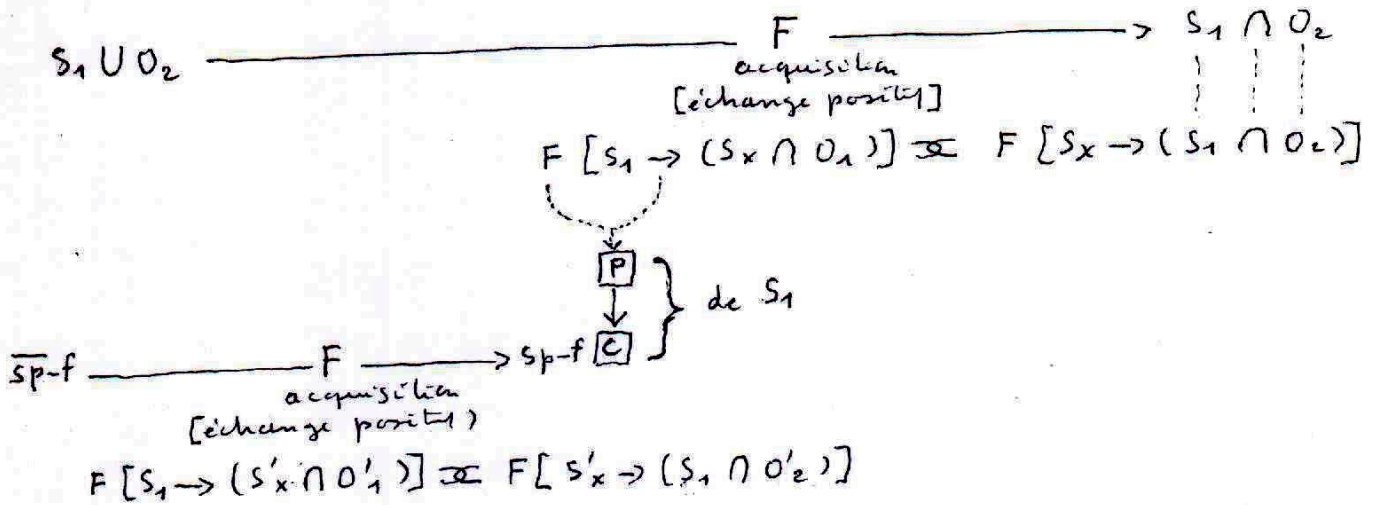 S₁ ∪ O₂ ——— F ———> S₁ ∩ O₂
acquisition
[échange positif]
F [S₁ → (Sx ∩ O₁)] ⫘ F [Sx → (S₁ ∩ O₂)]
P
de S₁
s̅p̅-f ——— F ———> sp-f C
acquisition
[échange positif)
F [S₁ → (S'x ∩ O'₁)] ⫘ F [S'x → (S₁ ∩ O'₂)]